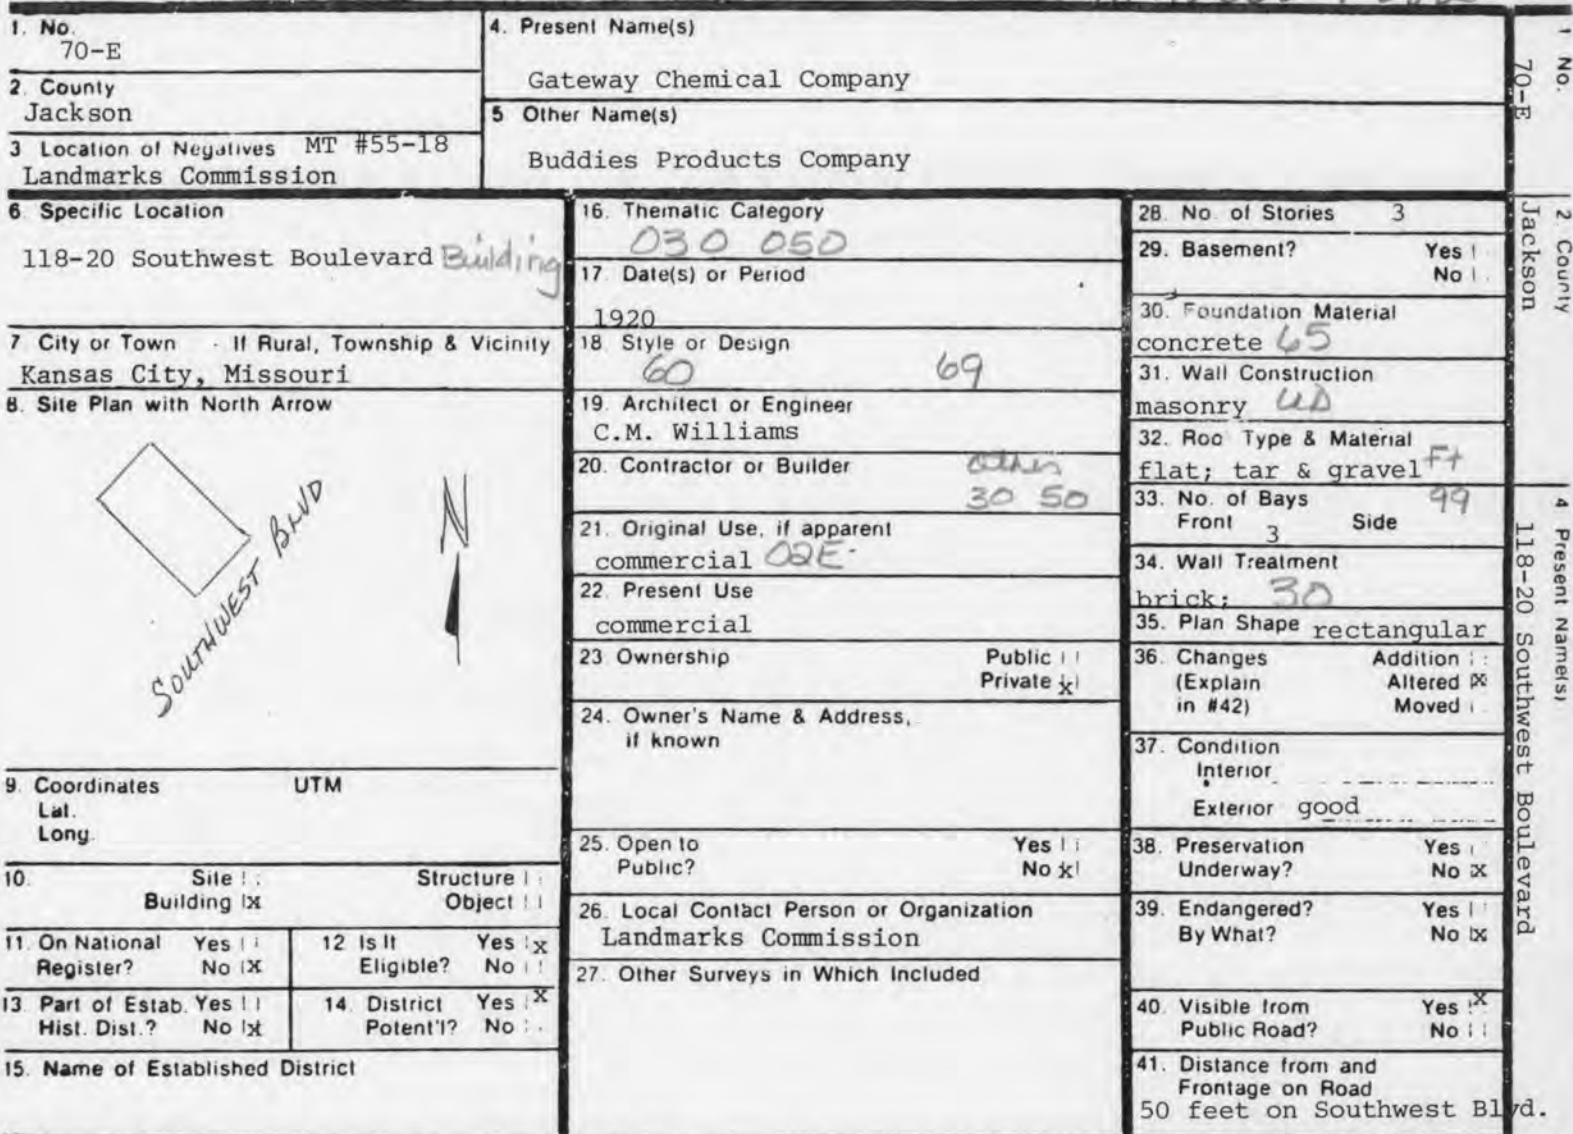 1. No.
70-E
2. County
Jackson
3 Location of Negatives MT #55-18
Landmarks Commission
4. Present Name(s)
Gateway Chemical Company
5 Other Name(s)
Buddies Products Company
6. Specific Location
118-20 Southwest Boulevard Building
7 City or Town If Rural, Township & Vicinity
Kansas City, Missouri
8. Site Plan with North Arrow
SOUTHWEST BLVD
N
9. Coordinates UTM
Lat.
Long.
10. Site Structure
Building x Object
11. On National Yes
Register? No X
12 Is It Yes x
Eligible? No
13. Part of Estab. Yes
Hist. Dist.? No x
14. District Yes x
Potent'l? No
15. Name of Established District
16. Thematic Category
030 050
17. Date(s) or Period
1920
18. Style or Design
60 69
19. Architect or Engineer
C.M. Williams
20. Contractor or Builder other
30 50
21. Original Use, if apparent
commercial 02E
22. Present Use
commercial
23 Ownership Public
Private x
24. Owner's Name & Address,
if known
25. Open to Yes
Public? No x
26. Local Contact Person or Organization
Landmarks Commission
27. Other Surveys in Which Included
28. No. of Stories 3
29. Basement? Yes
No
30. Foundation Material
concrete 65
31. Wall Construction
masonry UD
32. Roo Type & Material
flat; tar & gravel Ft
33. No. of Bays 99
Front 3 Side
34. Wall Treatment
brick; 30
35. Plan Shape rectangular
36. Changes Addition
(Explain Altered x
in #42) Moved
37. Condition
Interior
Exterior good
38. Preservation Yes
Underway? No x
39. Endangered? Yes
By What? No x
40. Visible from Yes x
Public Road? No
41. Distance from and
Frontage on Road
50 feet on Southwest Blvd.
1 No.
70-E
2 County
Jackson
4 Present Name(s)
118-20 Southwest Boulevard